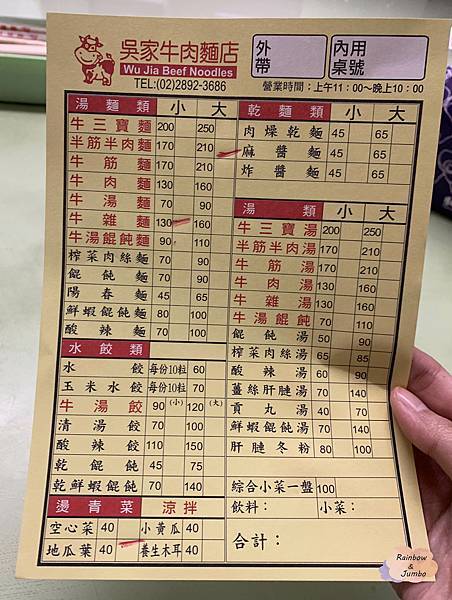 吳家牛肉麵店
Wu Jia Beef Noodles
TEL:(02)2892-3686
外帶
內用桌號
營業時間：上午11：00～晚上10：00
湯麵類 小 大
牛三寶麵 200 250
半筋半肉麵 170 210
牛筋麵 170 210
牛肉麵 130 160
牛湯麵 70 90
牛雜麵 130 160
牛湯餛飩麵 90 110
榨菜肉絲麵 70 90
餛飩麵 70 90
陽春麵 45 65
鮮蝦餛飩麵 80 100
酸辣麵 70 100
水餃類
水餃 每份10粒 60
玉米水餃 每份10粒 70
牛湯餃 90 (小) 120 (大)
清湯餃 70 100
酸辣餃 110 150
乾餛飩 45 75
乾鮮蝦餛飩 70 140
燙青菜 涼拌
空心菜 40 小黃瓜 40
地瓜葉 40 養生木耳 40
乾麵類 小 大
肉燥乾麵 45 65
麻醬麵 45 65
炸醬麵 45 65
湯類 小 大
牛三寶湯 200 250
半筋半肉湯 170 210
牛筋湯 170 210
牛肉湯 130 160
牛雜湯 130 160
牛湯餛飩 70 110
餛飩湯 50 90
榨菜肉絲湯 65 85
酸辣湯 60 90
薑絲肝膁湯 70 140
貢丸湯 40 70
鮮蝦餛飩湯 70 140
肝膁冬粉 80 100
綜合小菜一盤 100
飲料： 小菜：
合計：
Rainbow
&
Jumbo